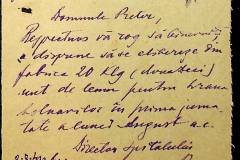 Domnule Pretor,
Respectuos vă rog să binevoiți
a dispune să se elibereze din
fabrica 20 Klg (douăzeci)
unt de lemn pentru hrana
bolnavilor în prima jumă
tate a lunei August a.c.
Director Spitalului